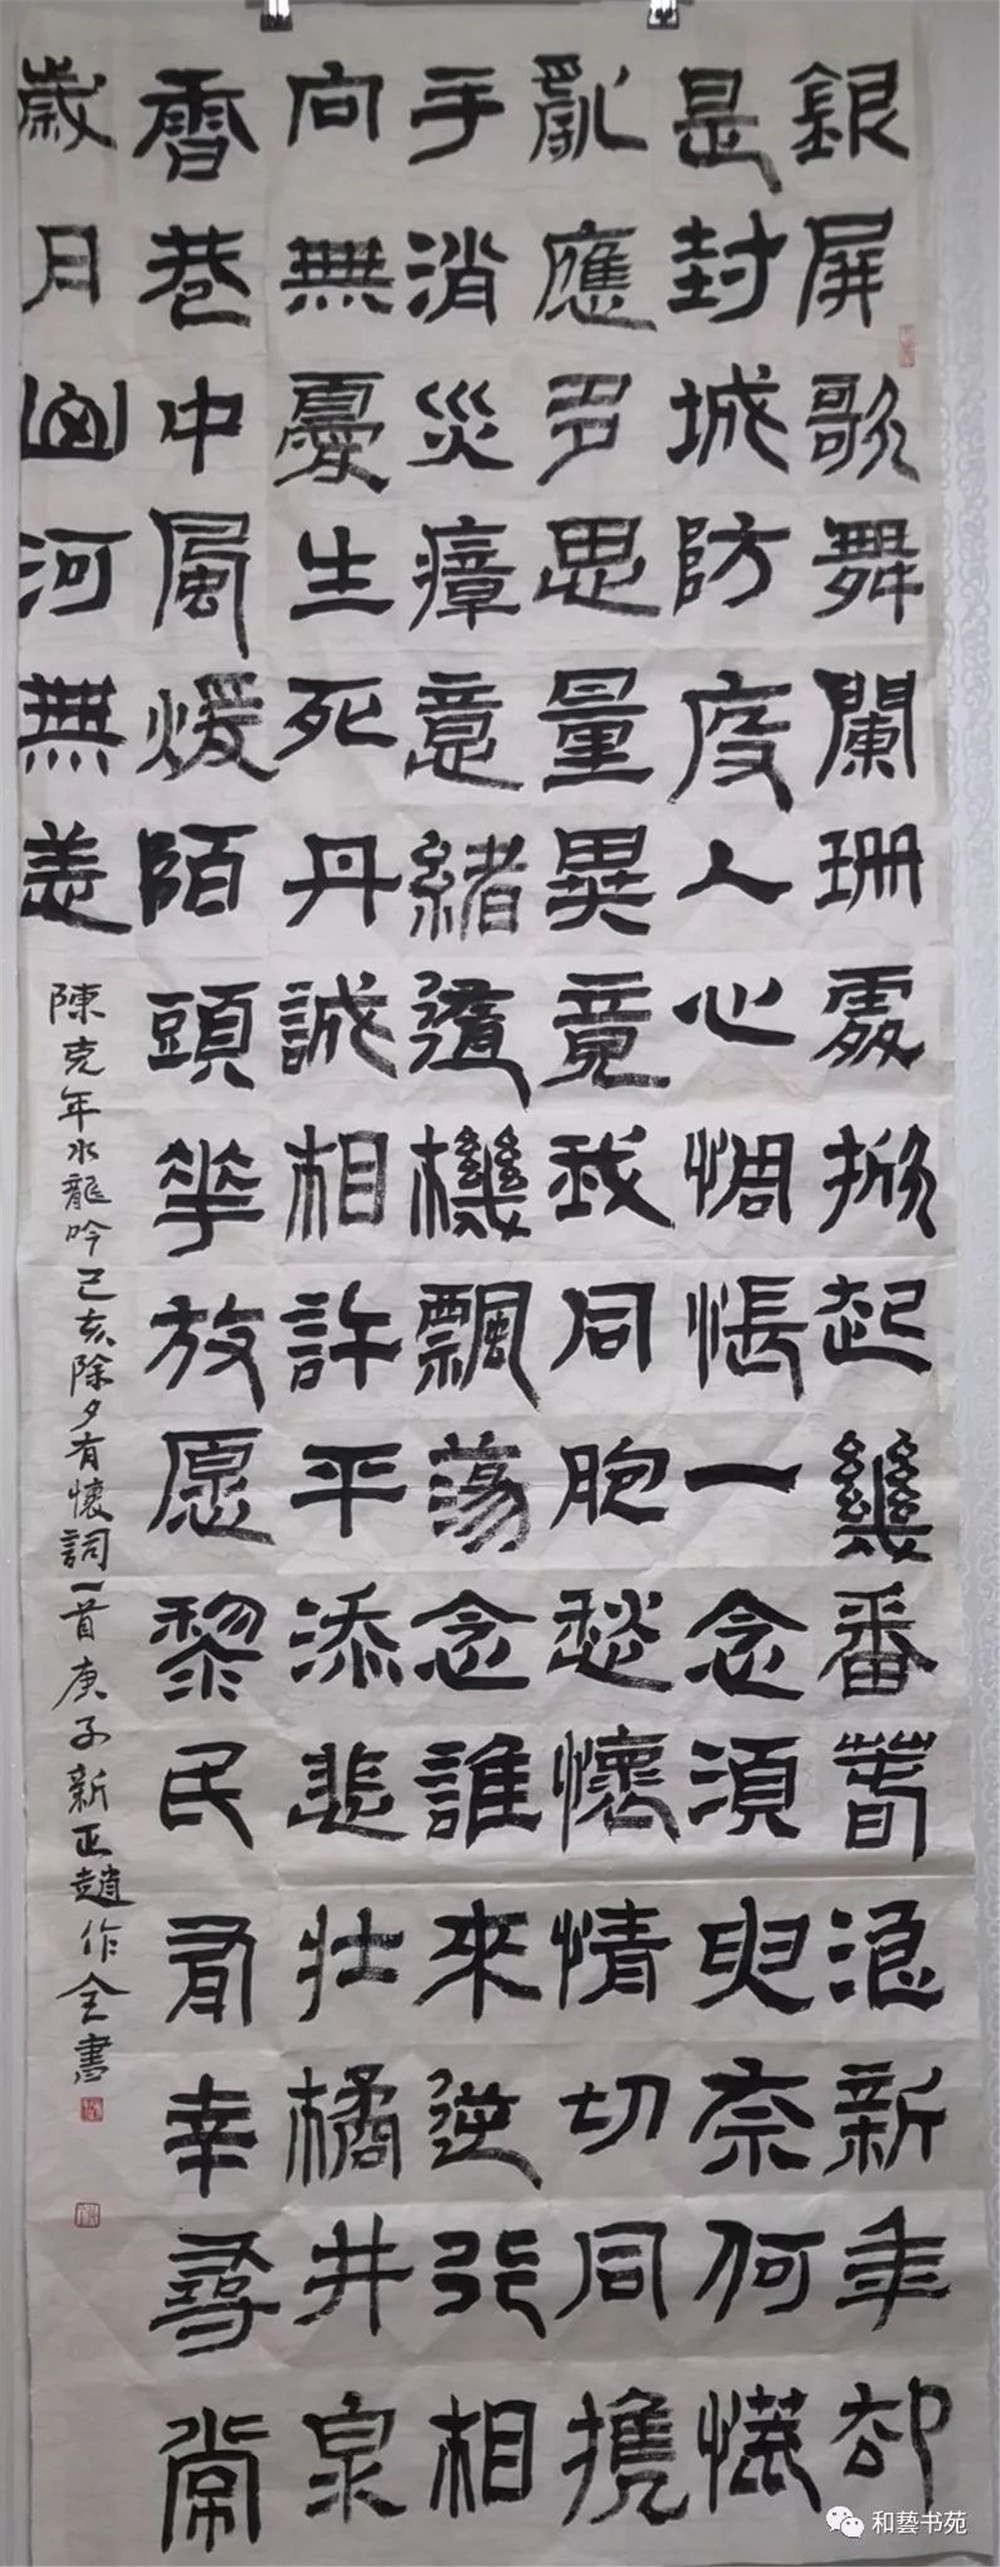 銀屏歌舞闌珊處掀起幾番春浪新年卻
是封城防疫人心惆悵一念須臾奈何慌
亂應多思量異竟我同胞愁懷情切同攜
手消災瘴意緒隨機飄蕩念誰來逆行相
向無憂生死丹誠相許平添悲壯橘井泉
香巷中風煖陌頭華放愿黎民有幸尋常
歲月山河無恙
陳克年水龍吟己亥除夕有懷詞一首庚子新正趙作全書
和藝书苑